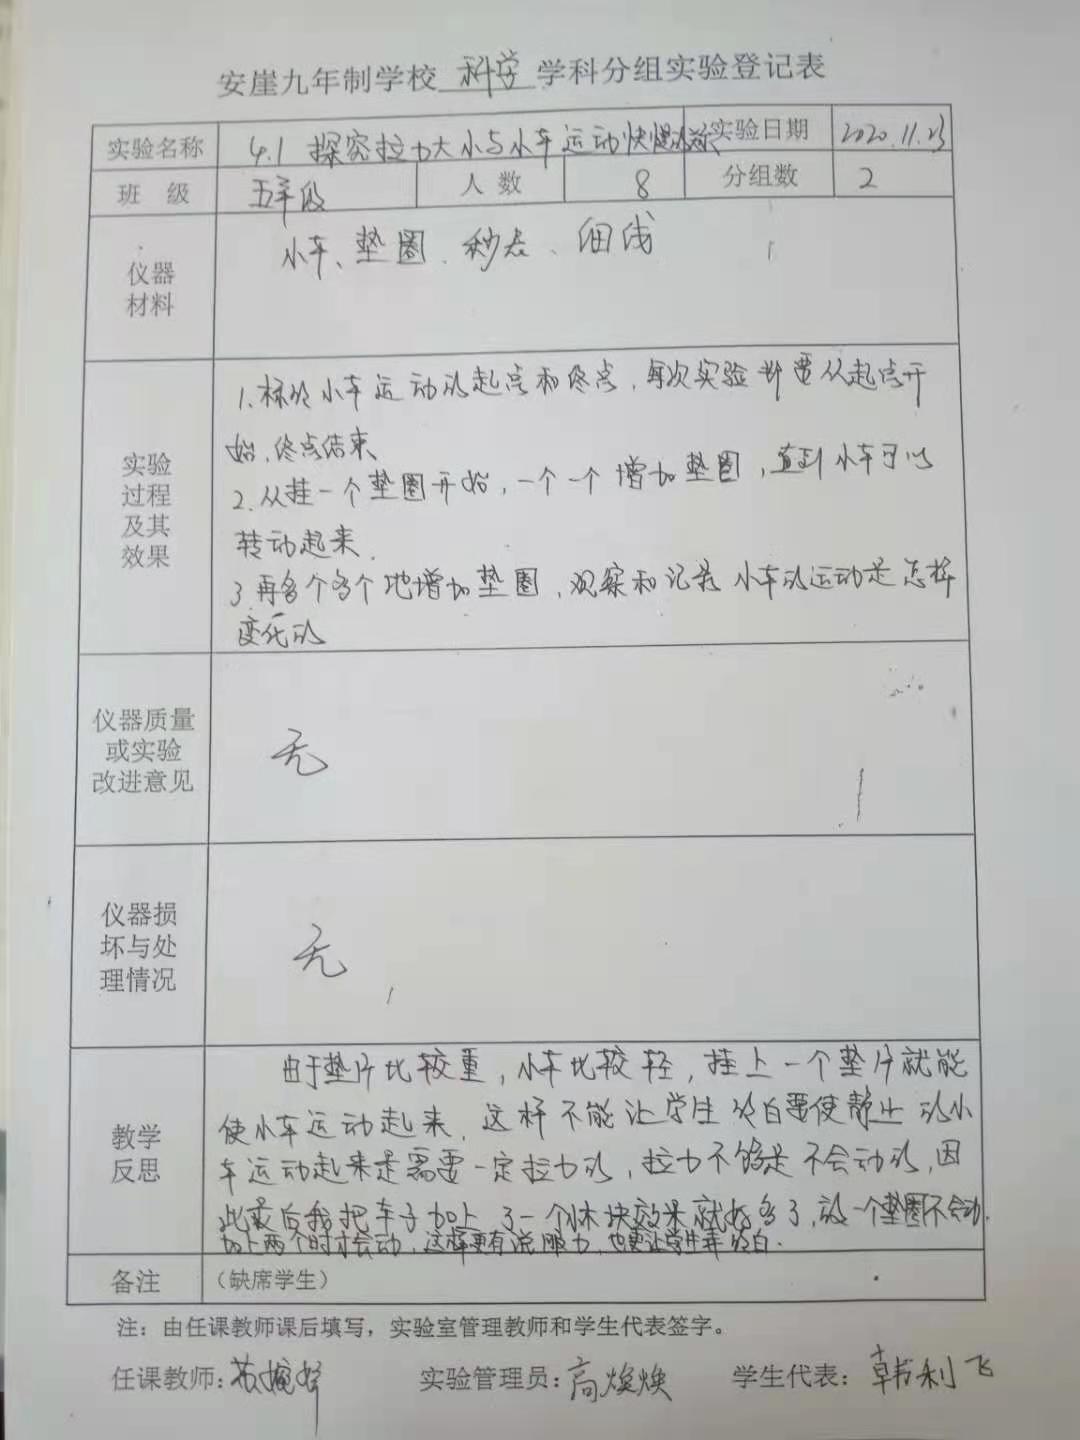 安崖九年制学校 科学 学科分组实验登记表
实验名称 4.1 探究拉力大小与小车运动快慢 实验日期 2020.11.23
班 级 五年级 人 数 8 分组数 2
仪器
材料
小车、垫圈、秒表、细线
实验
过程
及其
效果
1.标好小车运动的起点和终点,每次实验都要从起点开
始,终点结束
2.从挂一个垫圈开始,一个一个增加垫圈,直到小车可以
转动起来.
3.再多个多个地增加垫圈,观察和记录小车的运动是怎样
变化的
仪器质量
或实验
改进意见
无
仪器损
坏与处
理情况
无
教学
反思
由于垫片比较重,小车比较轻,挂上一个垫片就能
使小车运动起来,这样不能让学生明白要使静止的小
车运动起来是需要一定拉力的,拉力不够是不会动的,因
此最后我把车子加上了一个小木块效果就好多了,放一个垫圈不会动,
加上两个时才会动,这样更有说服力,也更让学生弄明白.
备注 (缺席学生)
注:由任课教师课后填写,实验室管理教师和学生代表签字。
任课教师: 实验管理员:高焕焕 学生代表:韩利飞